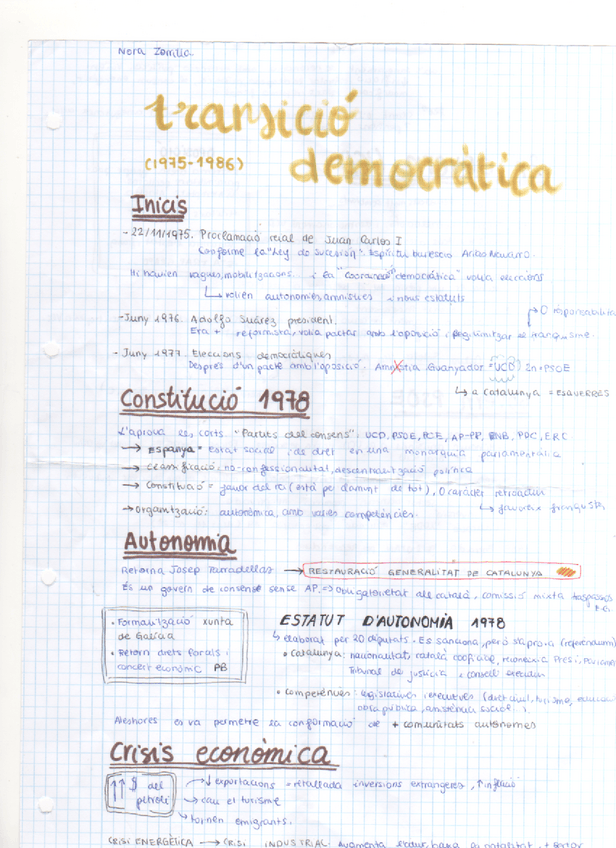 Nora Zorrilla.
transició
(1975-1986) democràtica
Inicis
- 22/11/1975. Proclamació reial de Juan Carlos I
Conforme la "Ley de Sucesión". Espíritu búlesco Arias Navarro.
Hi havien vagues, mobilitzacions i la "Coordinación democràtica" volia eleccions
volien autonomies, amnisties i nous estatuts
- Juny 1976. Adolfo Suárez president. 0 responsabilitat
Era + reformista, volia pactar amb l'oposició i llegitimitzar el franquisme.
- Juny 1977. Eleccions democràtiques
Després d'un pacte amb l'oposició. Amnistia Guanyador "UCD" 2n = PSOE
a Catalunya = ESQUERRES
Constitució 1978
L'aprova les corts "Partits del consens": UCD, PSOE, PCE, AP-PP, PNB, PDC, ERC
→ Espanya = Estat social i de dret en una monarquia parlamentària
→ Classificació: no confessionalitat, descentralització política
→ Constitució = favor del rei (està per damunt de tot), 0 caràcter retroactiu
→ organització: autonòmica, amb vàries competències.
Autonomia
Retorna Josep Tarradellas → RESTAURACIÓ GENERALITAT DE CATALUNYA
És un govern de consens sense AP. ⇒ Obligatorietat del català, comissió mixta traspassos
• Formalització xunta de Galícia
• Retorn drets forals i concert econòmic PB
ESTATUT D'AUTONOMIA 1978
elaborat per 20 diputats. Es sanciona, però s'aprova (referèndum)
• Catalunya: nacionalitat, català cooficial, reconeix Presi, Parlament
Tribunal de justícia i consell executiu
• Competències: legislatives i executives (dret civil, turisme, educació
obra pública, assistència social).
Aleshores es va permetre la conformació de + comunitats autònomes
Crisis econòmica
↑↑ $ del petroli
↓ exportacions = retallada inversions estrangeres, ↑ inflació
→ cau el turisme
→ tornen emigrants.
CRISI ENERGÈTICA → CRISI INDUSTRIAL: Augmenta l'atur, baixa la natalitat, + sector